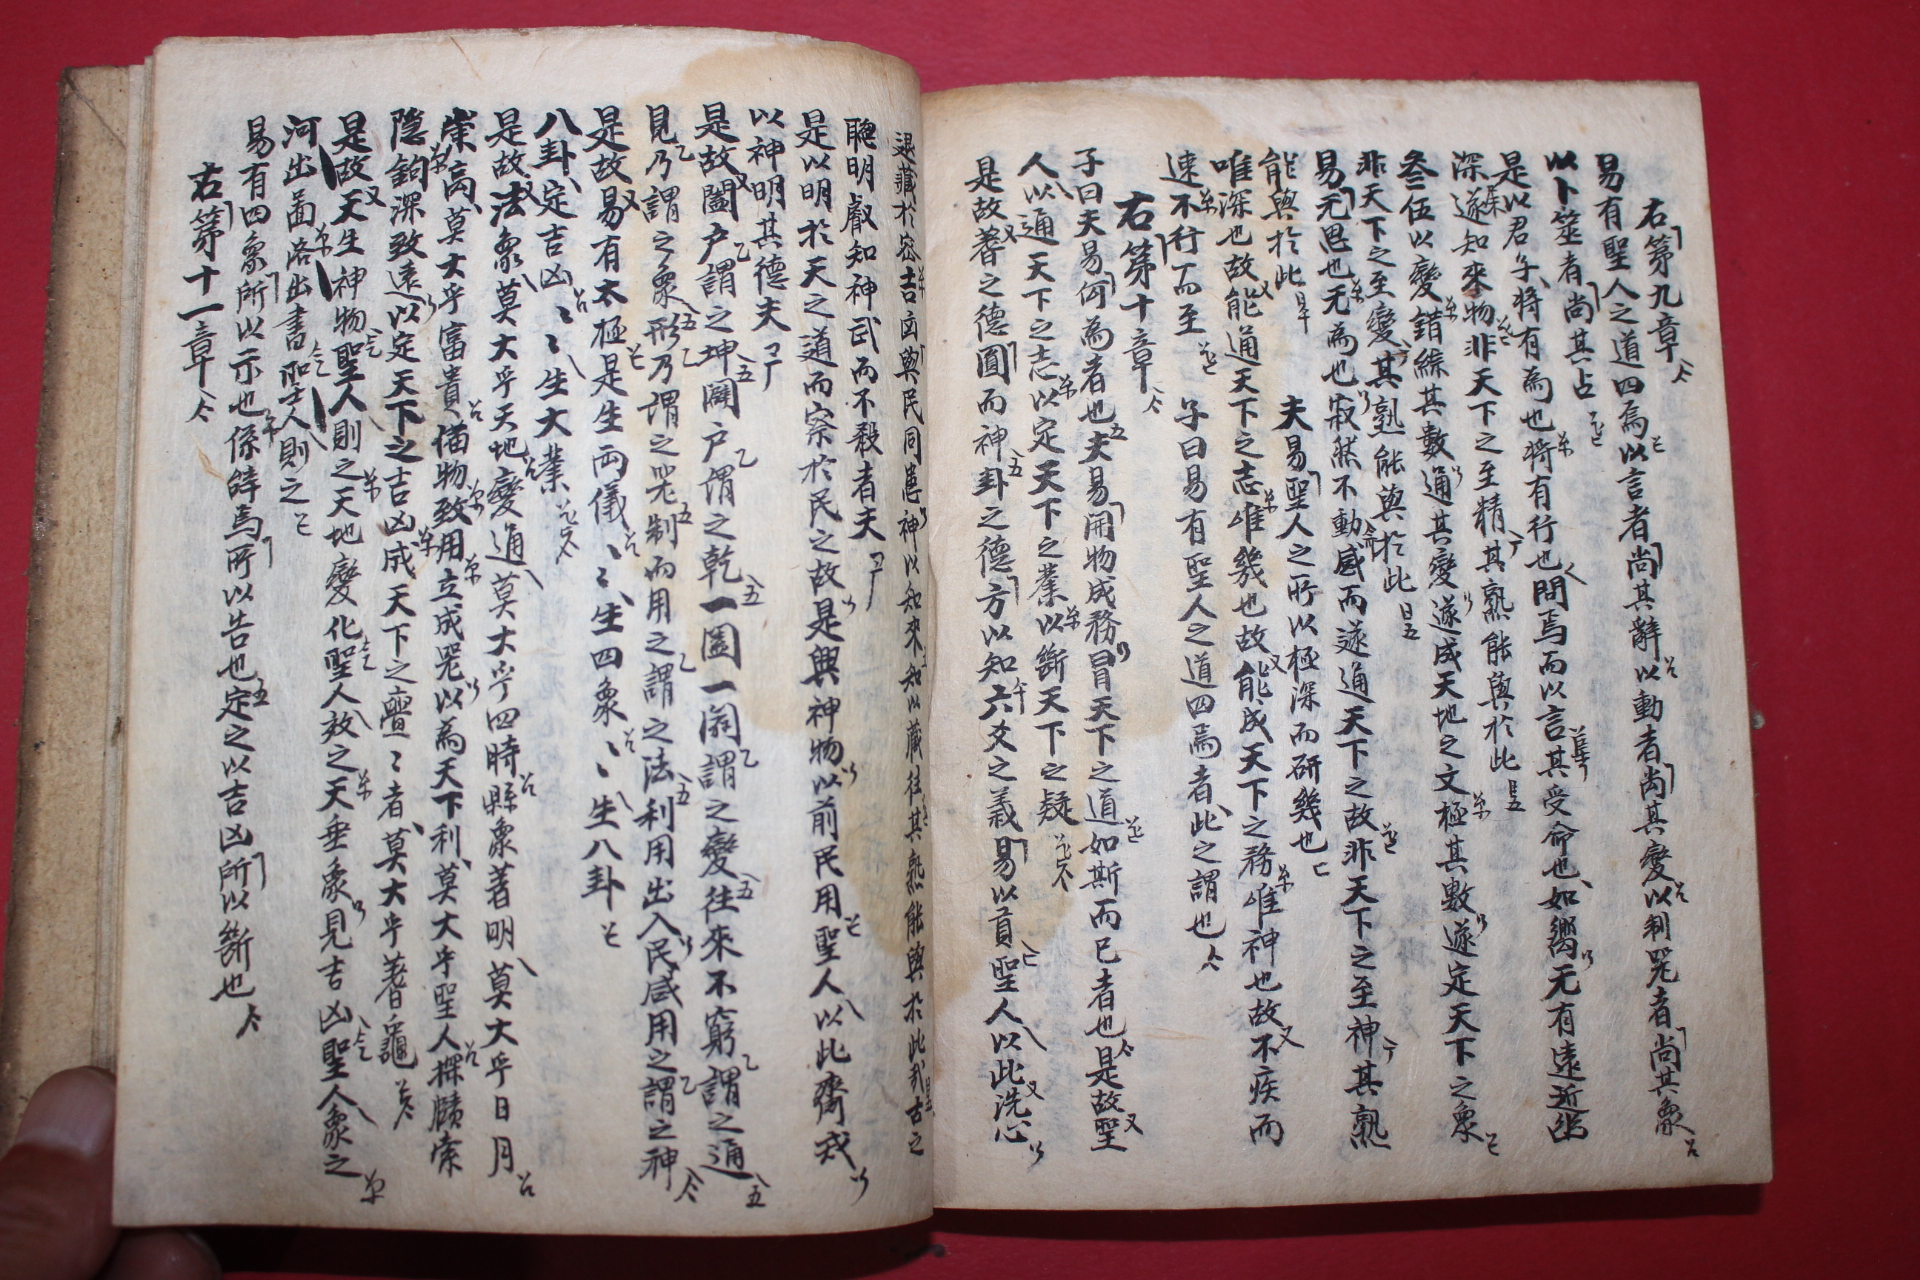 右第九章
易有聖人之道四焉以言者尚其辭以動者尚其變以制器者尚其象
以卜筮者尚其占
是以君子將有為也將有行也問焉而以言其受命也如嚮无有遠近幽
深遂知來物非天下之至精其孰能與於此
叅伍以變錯綜其數通其變遂成天地之文極其數遂定天下之象
非天下之至變其孰能與於此
易无思也无為也寂然不動感而遂通天下之故非天下之至神其孰
能與於此 夫易聖人之所以極深而研幾也
唯深也故能通天下之志唯幾也故能成天下之務唯神也故不疾而
速不行而至 子曰易有聖人之道四焉者此之謂也
右第十章
子曰夫易何為者也夫易開物成務冒天下之道如斯而已者也是故聖
人以通天下之志以定天下之業以斷天下之疑
是故蓍之德圓而神卦之德方以知六爻之義易以貢聖人以此洗心
退藏於密吉凶與民同患神以知來知以藏往其孰能與於此哉古之
聰明叡知神武而不殺者夫
是以明於天之道而察於民之故是興神物以前民用聖人以此齋戒
以神明其德夫
是故闔戶謂之坤闢戶謂之乾一闔一闢謂之變往來不窮謂之通
見乃謂之象形乃謂之器制而用之謂之法利用出入民咸用之謂之神
是故易有太極是生兩儀〻〻生四象〻〻生八卦
八卦定吉凶〻〻生大業
是故法象莫大乎天地變通莫大乎四時縣象著明莫大乎日月
崇高莫大乎富貴備物致用立成器以為天下利莫大乎聖人探賾索
隱鉤深致遠以定天下之吉凶成天下之亹〻者莫大乎蓍龜
是故天生神物聖人則之天地變化聖人效之天垂象見吉凶聖人象之
河出圖洛出書聖人則之
易有四象所以示也係辭焉所以告也定之以吉凶所以斷也
右第十一章